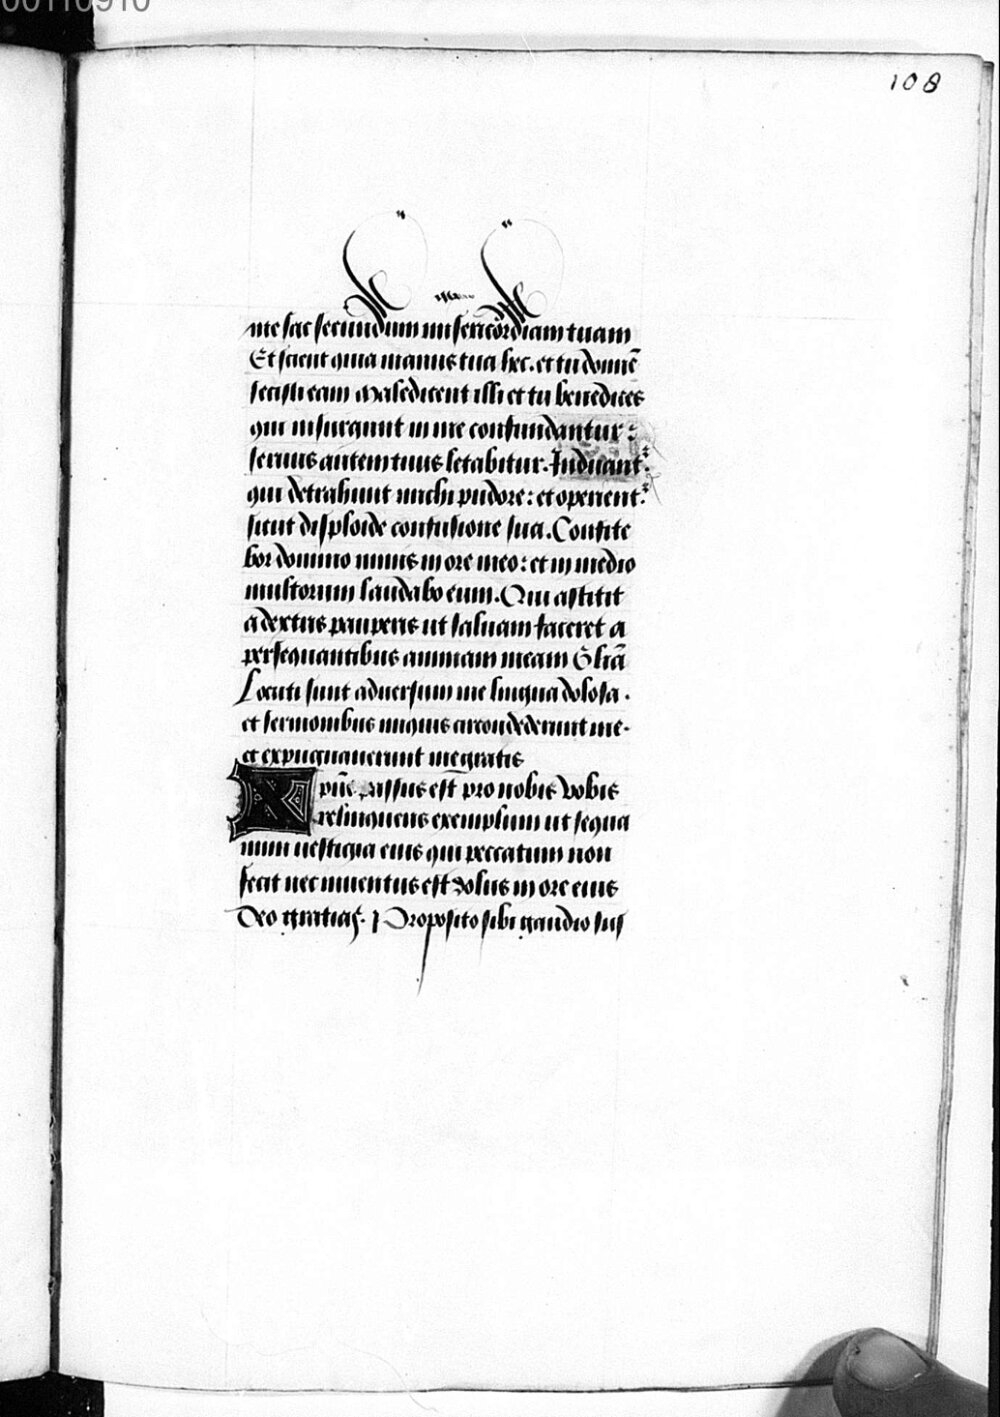 00110910
108
me fac secundum misericordiam tuam
Et scient quia manus tua hec. et tu domīe
fecisti eam Maledicent illi et tu benedices
qui insurgunt in me confundantur:
servus autem tuus letabitur. Induant:
qui detrahunt michi pudore: et operient:
sicut disploide confusione sua. Confite
bor domino nimis in ore meo: et in medio
multorum laudabo eum. Qui astitit
a dextris pauperis ut saluam faceret a
persequantibus animam meam Glīa
Locuti sunt aduersum me lingua dolosa.
et sermonibus iniquis circondederunt me.
et expugnauerunt me gratis
Xpūs passus est pro nobis vobis
relinquens exemplum ut sequa
mini uestigia eius qui peccatum non
fecit nec inuentus est dolus in ore eius
Deo gratias. Proposito sibi gaudio sus